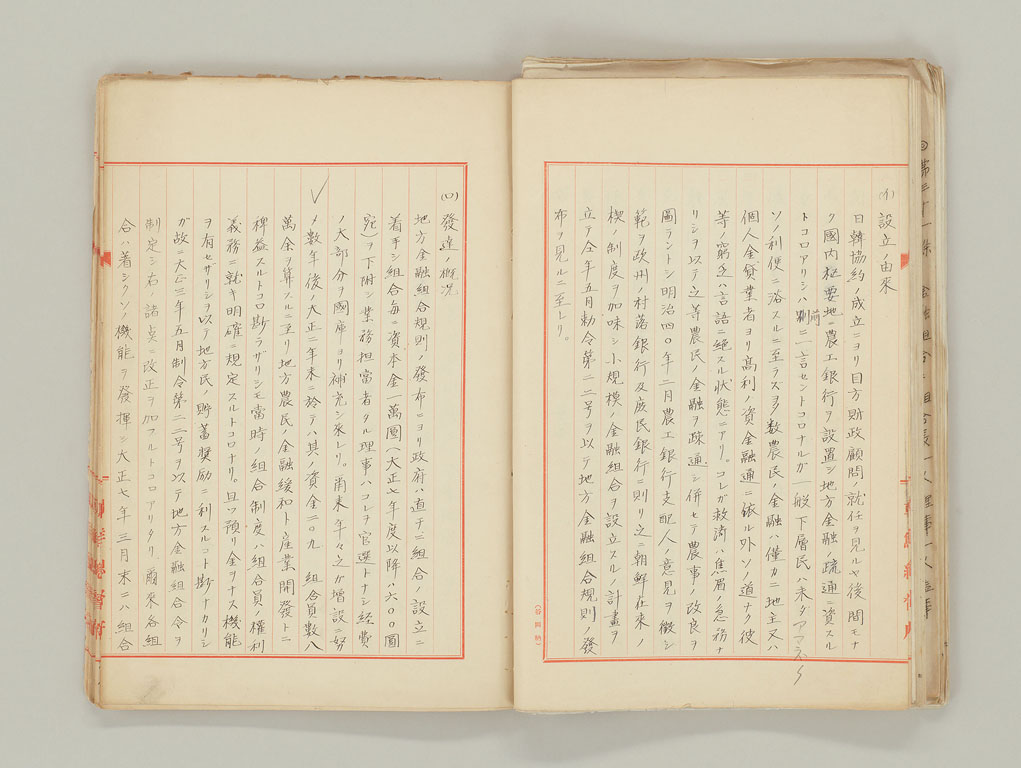 (イ) 設立ノ由來
日韓協約ノ成立ニヨリ目方財政顧問ノ就任ヲ見ルヤ後間モナ
ク國内枢要地ニ農工銀行ヲ設置シ地方金融ノ疏通ニ資スル
トコロアリシハ前ニ一言セントコロナルガ一般下層民ハ未ダアマネク
ソノ利便ニ浴スルニ至ラズ多数農民ノ金融ハ僅カニ地主又ハ
個人金貸業者ヨリ高利ノ資金融通ニ依ル外ソノ道ナク彼
等ノ窮乏ハ言語ニ絶スル状態ニアリ。コレガ救済ハ焦眉ノ急務ナ
リシヲ以テ之等農民ノ金融ヲ疎通シ併セテ農事ノ改良ヲ
圖ラントシ明治四〇年二月農工銀行支配人ノ意見ヲ徴シ
範ヲ欧州ノ村落銀行及庶民銀行ニ則リ之ニ朝鮮在來ノ
楔ノ制度ヲ加味シ小規模ノ金融組合ヲ設立スルノ計畫ヲ
立テ仝年五月勅令第三三号ヲ以テ地方金融組合規則ノ發
布ヲ見ルニ至レリ。
(ロ) 發達ノ概況
地方金融組合規則ノ發布ニヨリ政府ハ直チニ組合ノ設立ニ
着手シ組合毎ニ資本金一萬圜(大正七年度以降ハ六〇〇圓
宛)ヲ下附シ業務担當者タル理事ハコレヲ官選トナシ経費
ノ大部分ヲ國庫ヨリ補充シ來レリ。爾來年々之ガ増設ニ努
メ数年後ノ大正二年末ニ於テハ其ノ資金二〇九 組合員数八
萬余ヲ算スルニ至リ地方農民ノ金融緩和ト産業開發トニ
稗益スルトコロ尠ラザリシモ當時ノ組合制度ハ組合員ノ權利
義務ニ就キ明確ニ規定スルトコロナリ。且ツ預リ金ヲナス機能
ヲ有セザリシヲ以テ地方民ノ貯蓄奨励ニ利スルコト尠ナカリシ
ガ故ニ大正三年五月制令第二二号ヲ以テ地方金融組合令ヲ
制定シ右ノ諸点ニ改正ヲ加フルトコロアリタリ。爾來各組
合ハ着シクソノ機能ヲ發揮シ大正七年三月末ニハ組合